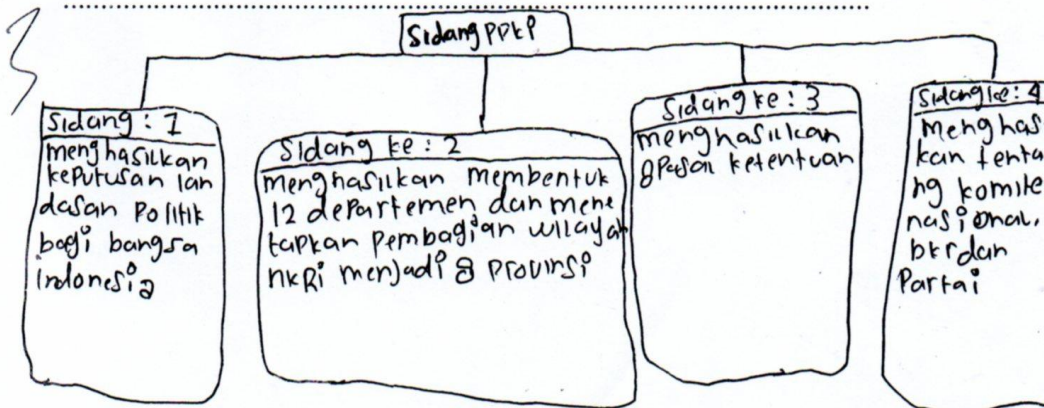 Sidang PPKI
Sidang : 1
menghasilkan
keputusan lan
dasan Politik
bagi bangsa
indonesia
Sidang ke : 2
menghasilkan membentuk
12 departemen dan mene
tapkan pembagian wilayah
nKRi menjadi 8 provinsi
Sidang ke : 3
menghasilkan
8 Pasal ketentuan
Sidang ke : 4
menghas
kan tenta
ng komite
nasional,
bkr dan
Partai